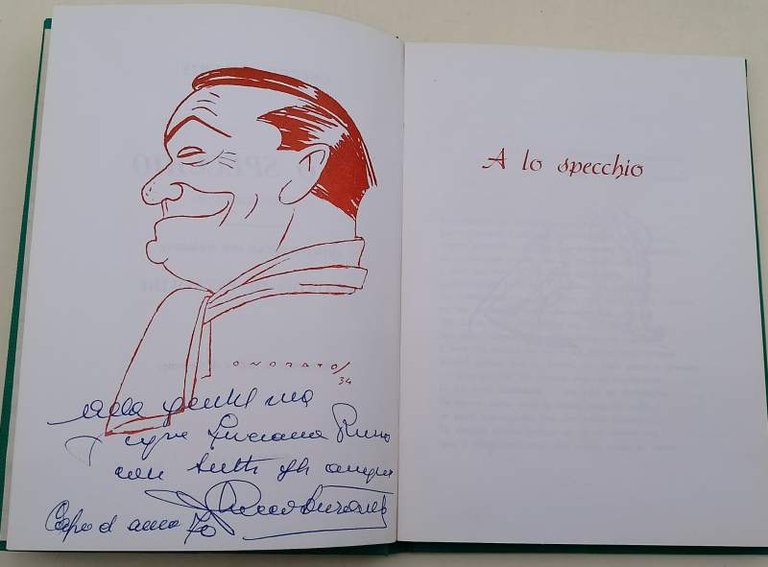 ONORATO
34
alla gentil ma
Luciana
con tutti gli auguri
Checco Durante
Capo d'anno 70
A lo specchio